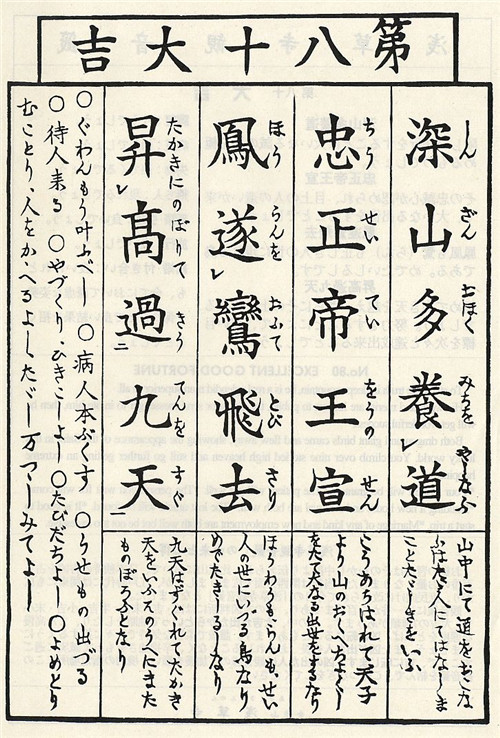 第八十大吉
しんざん おほく みちを やしなふ
深山多養道
ちうせい ていをうの せん
忠正帝王宣
ほうらんを おふて とびさり
鳳遂レ鸞飛去
たかきにのぼりて きうてんを すぐ
昇レ高過二九天一
山中にて道をおこな
ふはたゞ人にてはなしま
ことたゞしきをいふ
こうあらはれて天子
より山のおくへちよくし
をたて大なる出世をするなり
ほうわうもらんも、せい
人の世にいづる鳥なり
めでたきしるしなり
九天はすぐれてたかき
天をいふそのうへにまた
ものぼらふとなり
○ぐわんもう叶ふべし ○病人本ぶくす ○うせもの出づる
○待人来る ○やづくり、ひきこしよし ○たびだちよし ○よめとり
むことり、人をかゝへるよしたゞし万つゝしみてよし